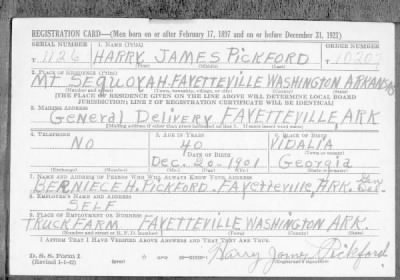 REGISTRATION CARD—(Men born on or after February 17, 1897 and on or before December 31, 1921)
SERIAL NUMBER 1. NAME (Print) ORDER NUMBER
T 1126 HARRY JAMES PICKFORD T 10209
(First) (Middle) (Last)
2. PLACE OF RESIDENCE (Print)
MT SEQUOYAH. FAYETTEVILLE WASHINGTON ARKANSAS
(Number and street) (Town, township, village, or city) (County) (State)
[THE PLACE OF RESIDENCE GIVEN ON THE LINE ABOVE WILL DETERMINE LOCAL BOARD
JURISDICTION; LINE 2 OF REGISTRATION CERTIFICATE WILL BE IDENTICAL]
3. MAILING ADDRESS
General Delivery FAYETTEVILLE ARK
[Mailing address if other than place indicated on line 2. If same insert word same]
4. TELEPHONE 5. AGE IN YEARS 6. PLACE OF BIRTH
NO 40 VIDALIA
DATE OF BIRTH
Dec. 20. 1901 Georgia
7. NAME AND ADDRESS OF PERSON WHO WILL ALWAYS KNOW YOUR ADDRESS
BERNIECE H. PICKFORD - FAYETTEVILLE, ARK. Gen Del.
8. EMPLOYER'S NAME AND ADDRESS
SELF
9. PLACE OF EMPLOYMENT OR BUSINESS
TRUCK FARM FAYETTEVILLE WASHINGTON ARK.
(Number and street or R. F. D. number) (Town) (County) (State)
I AFFIRM THAT I HAVE VERIFIED ABOVE ANSWERS AND THAT THEY ARE TRUE.
D. S. S. Form 1
(Revised 1-1-42) Harry James Pickford